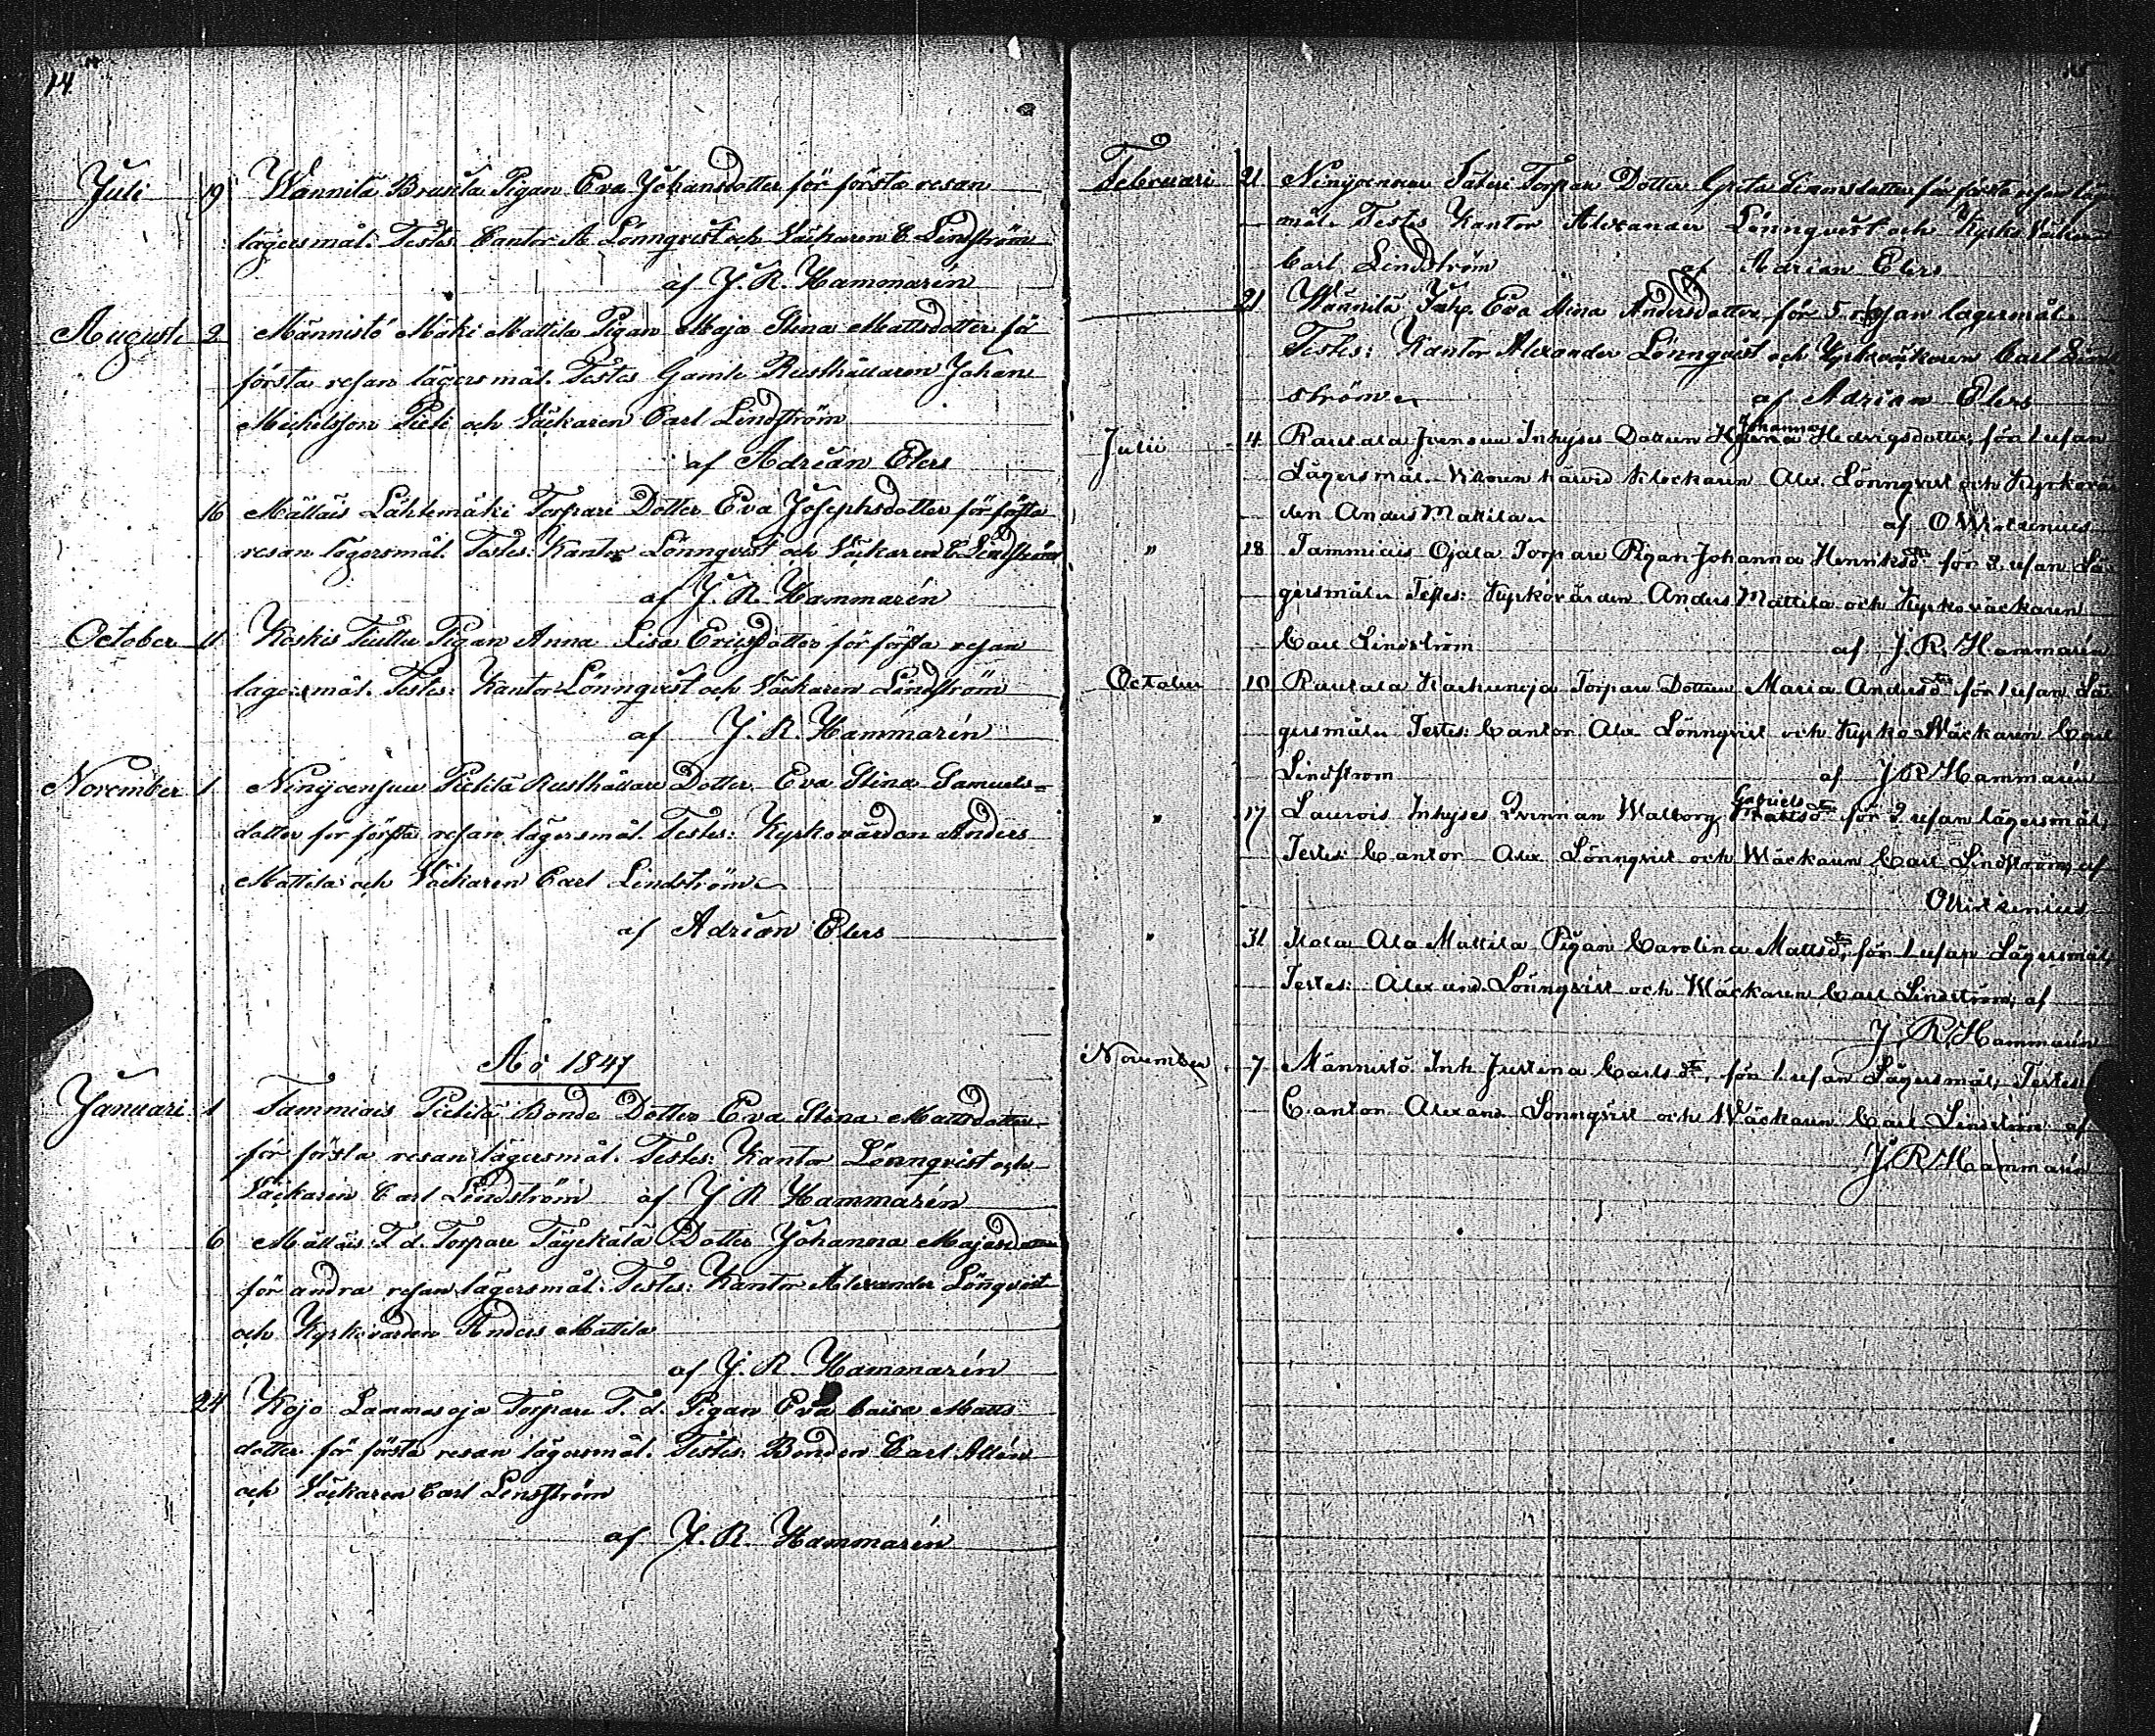 14
Juli 19 Wännilä Brusila Pigan Eva Johansdotter för första resan
lägersmål. Testes Cantor A Lönnqvist och Väckaren C Lindström
af J. R. Hammarén
Augusti 2 Männistö Mäki Mattila Pigan Maja Stina Mattsdotter för
första resan lägersmål. Testes Gamle Rusthållaren Johan
Michelsson Pieli och Väckaren Carl Lindström
af Adrian Elers
16 Mällais Lähtemäki Torpare Dotter Eva Josephsdotter för första
resan lägersmål. Testes: Kantor Lönnqvist och Väckaren C. Lindström
af J. R. Hammarén
October 11 Koskis Pigan Anna Lisa Ericsdotter för första resan
lägersmål. Testes: Kantor Lönnqvist och Väckaren Lindström
af J. R Hammarén
November 1 Ninijoensuu Pietilä Rusthållare Dotter Eva Stina Samuels=
dotter för första resan lägersmål. Testes: Kyrkovärden Anders
Mattila och Väckaren Carl Lindström
af Adrian Elers
Ao 1847
Januari 1 Tammiais Pietilä Bonde Dotter Eva Stina Mattsdotter
för första resan lägersmål. Testes: Kantor Lönnqvist och
Väckaren Carl Lindström af J R Hammarén
6 Mällais T. d. Torpare Dotter Johanna Majasdotter
för andra resan lägersmål. Testes: Kantor Alexander Lönqvist
och Kyrkovärden Anders Mattila
af J. R. Hammarén
24 Kojo Lammasoja Torpare T. d. Pigan Eva Caisa Matts
dotter för första resan lägersmål. Testes: Bonden Carl Allén
och Väckaren Carl Lindström
af J. R. Hammarén
15
Februari 21 Ninijoensuu Säteri Torpare Dotter Greta Simonsdotter för första resan läger
mål. Testes Kantor Alexander Lönnqvist och Kyrko Väckaren
Carl Lindström af Adrian Elers
21 Wännilä Inh. Eva Stina Andersdotter för 5 resan lägersmål.
Testes: Kantor Alexander Lönnqvist och Kyrkväckaren Carl Lind
ström af Adrian Elers
Julii 4 Rautala Joensuu Inhyses Dottren Johanna Hedvigsdotter, för 1 resan
Lägersmål. Vittnen härvid Klockaren Alex. Lönnqvist och Kyrkovär
den Anders Mattila af O Wirzenius
" 18 Tammiais Ojala Torpare Pigan Johanna Henriksdtr för 2. resan Lä
gersmål. Testes: Kyrkovärden Anders Mattila och Kyrkoväckaren
Carl Lindström af J. R. Hammarén
October 10 Rautala Torpare Dottren Maria Andersdtr för 1 resan Lä
gersmål. Testes: Cantor Alex Lönnqvist och Kyrko Wäckaren Carl
Lindström af J R Hammarén
" 17 Laurois Inhyses Qvinnan Walborg Gabrielsdtr för 2 resan lägersmål,
Testes: Cantor Alex Lönnqvist och Wäckaren Carl Lindström, af
O Wirzenius
" 31 Ala Mattila Pigan Carolina Mattsdtr, för 1 resan Lägersmål,
Testes: Alexand. Lönnqvist och Wäckaren Carl Lindström, af
J. R. Hammarén
November 7 Männistö Inh Justina Carlsdtr, för 1. resan Lägersmål, Testes
Cantor Alexand Lönnqvist och Wäckaren Carl Lindström af
J. R Hammarén